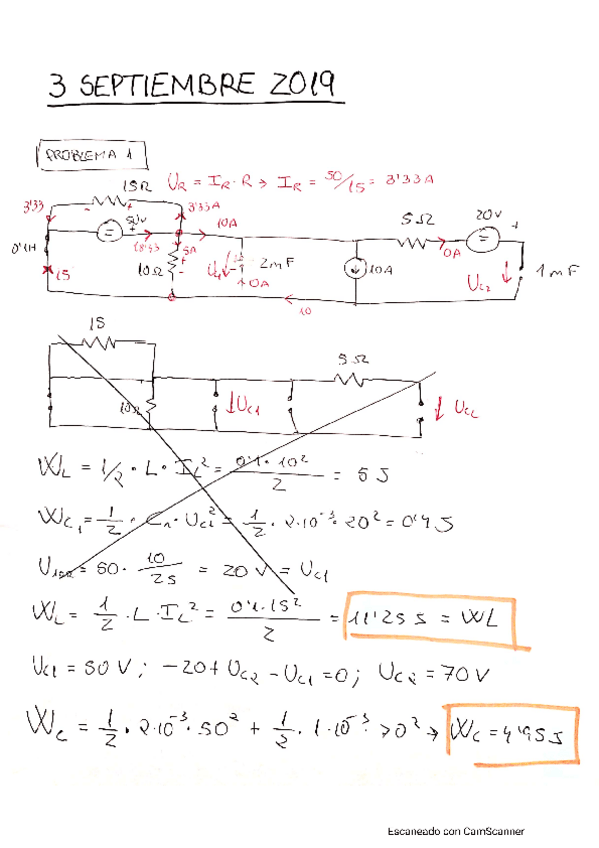 3 SEPTIEMBRE 2019
PROBLEMA 1
15Ω U_R = I_R · R → I_R = 50/15 = 3'33A
3'33 3'33A
50V 10A
5Ω 20V
0'1H 18'33 5A
10Ω 2mF 10A 0A 1mF
15 0A U_C2
10
15
5Ω
10Ω U_C1 U_C2
W_L = 1/2 · L · I_L² = 0'1 · 10² / 2 = 5 J
W_C1 = 1/2 · C_1 · U_C1² = 1/2 · 2·10⁻³ · 20² = 0'4 J
= 50 · 10/25 = 20 V = U_C1
W_L = 1/2 · L · I_L² = 0'1 · 15² / 2 = 11'25 J = WL
U_C1 = 50 V ; -20 + U_C2 - U_C1 = 0 ; U_C2 = 70 V
W_C = 1/2 · 2·10⁻³ · 50² + 1/2 · 1·10⁻³ · 70² → W_C = 4'95 J
Escaneado con CamScanner